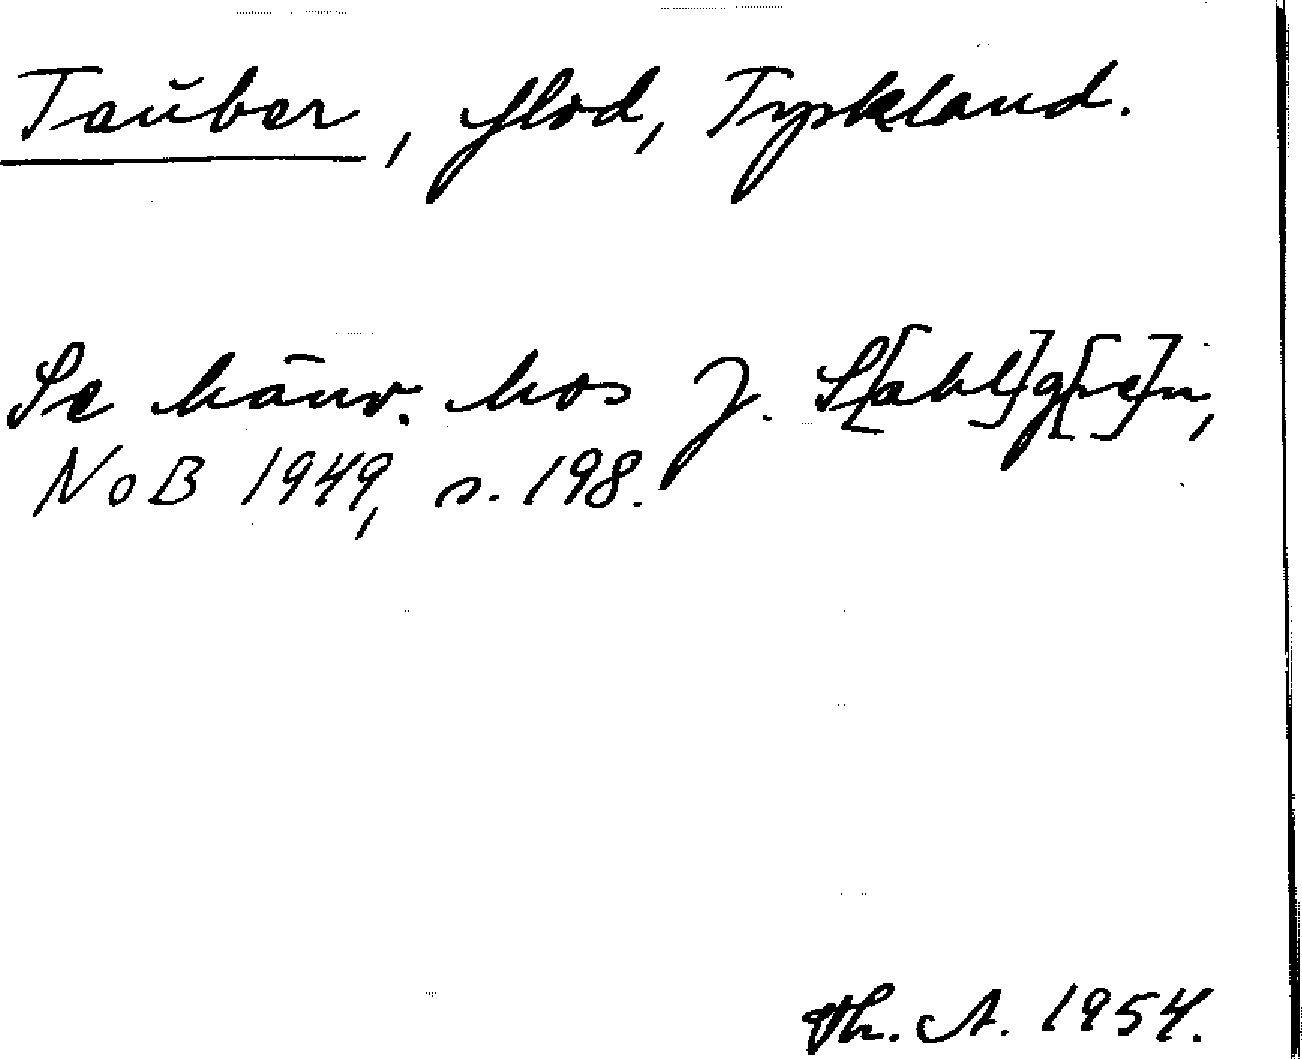 Tauber, flod, Tyskland.
Se hänv. hos J. S[ahl]g[re]n,
NoB 1949, s. 198.
Th. A. 1954.